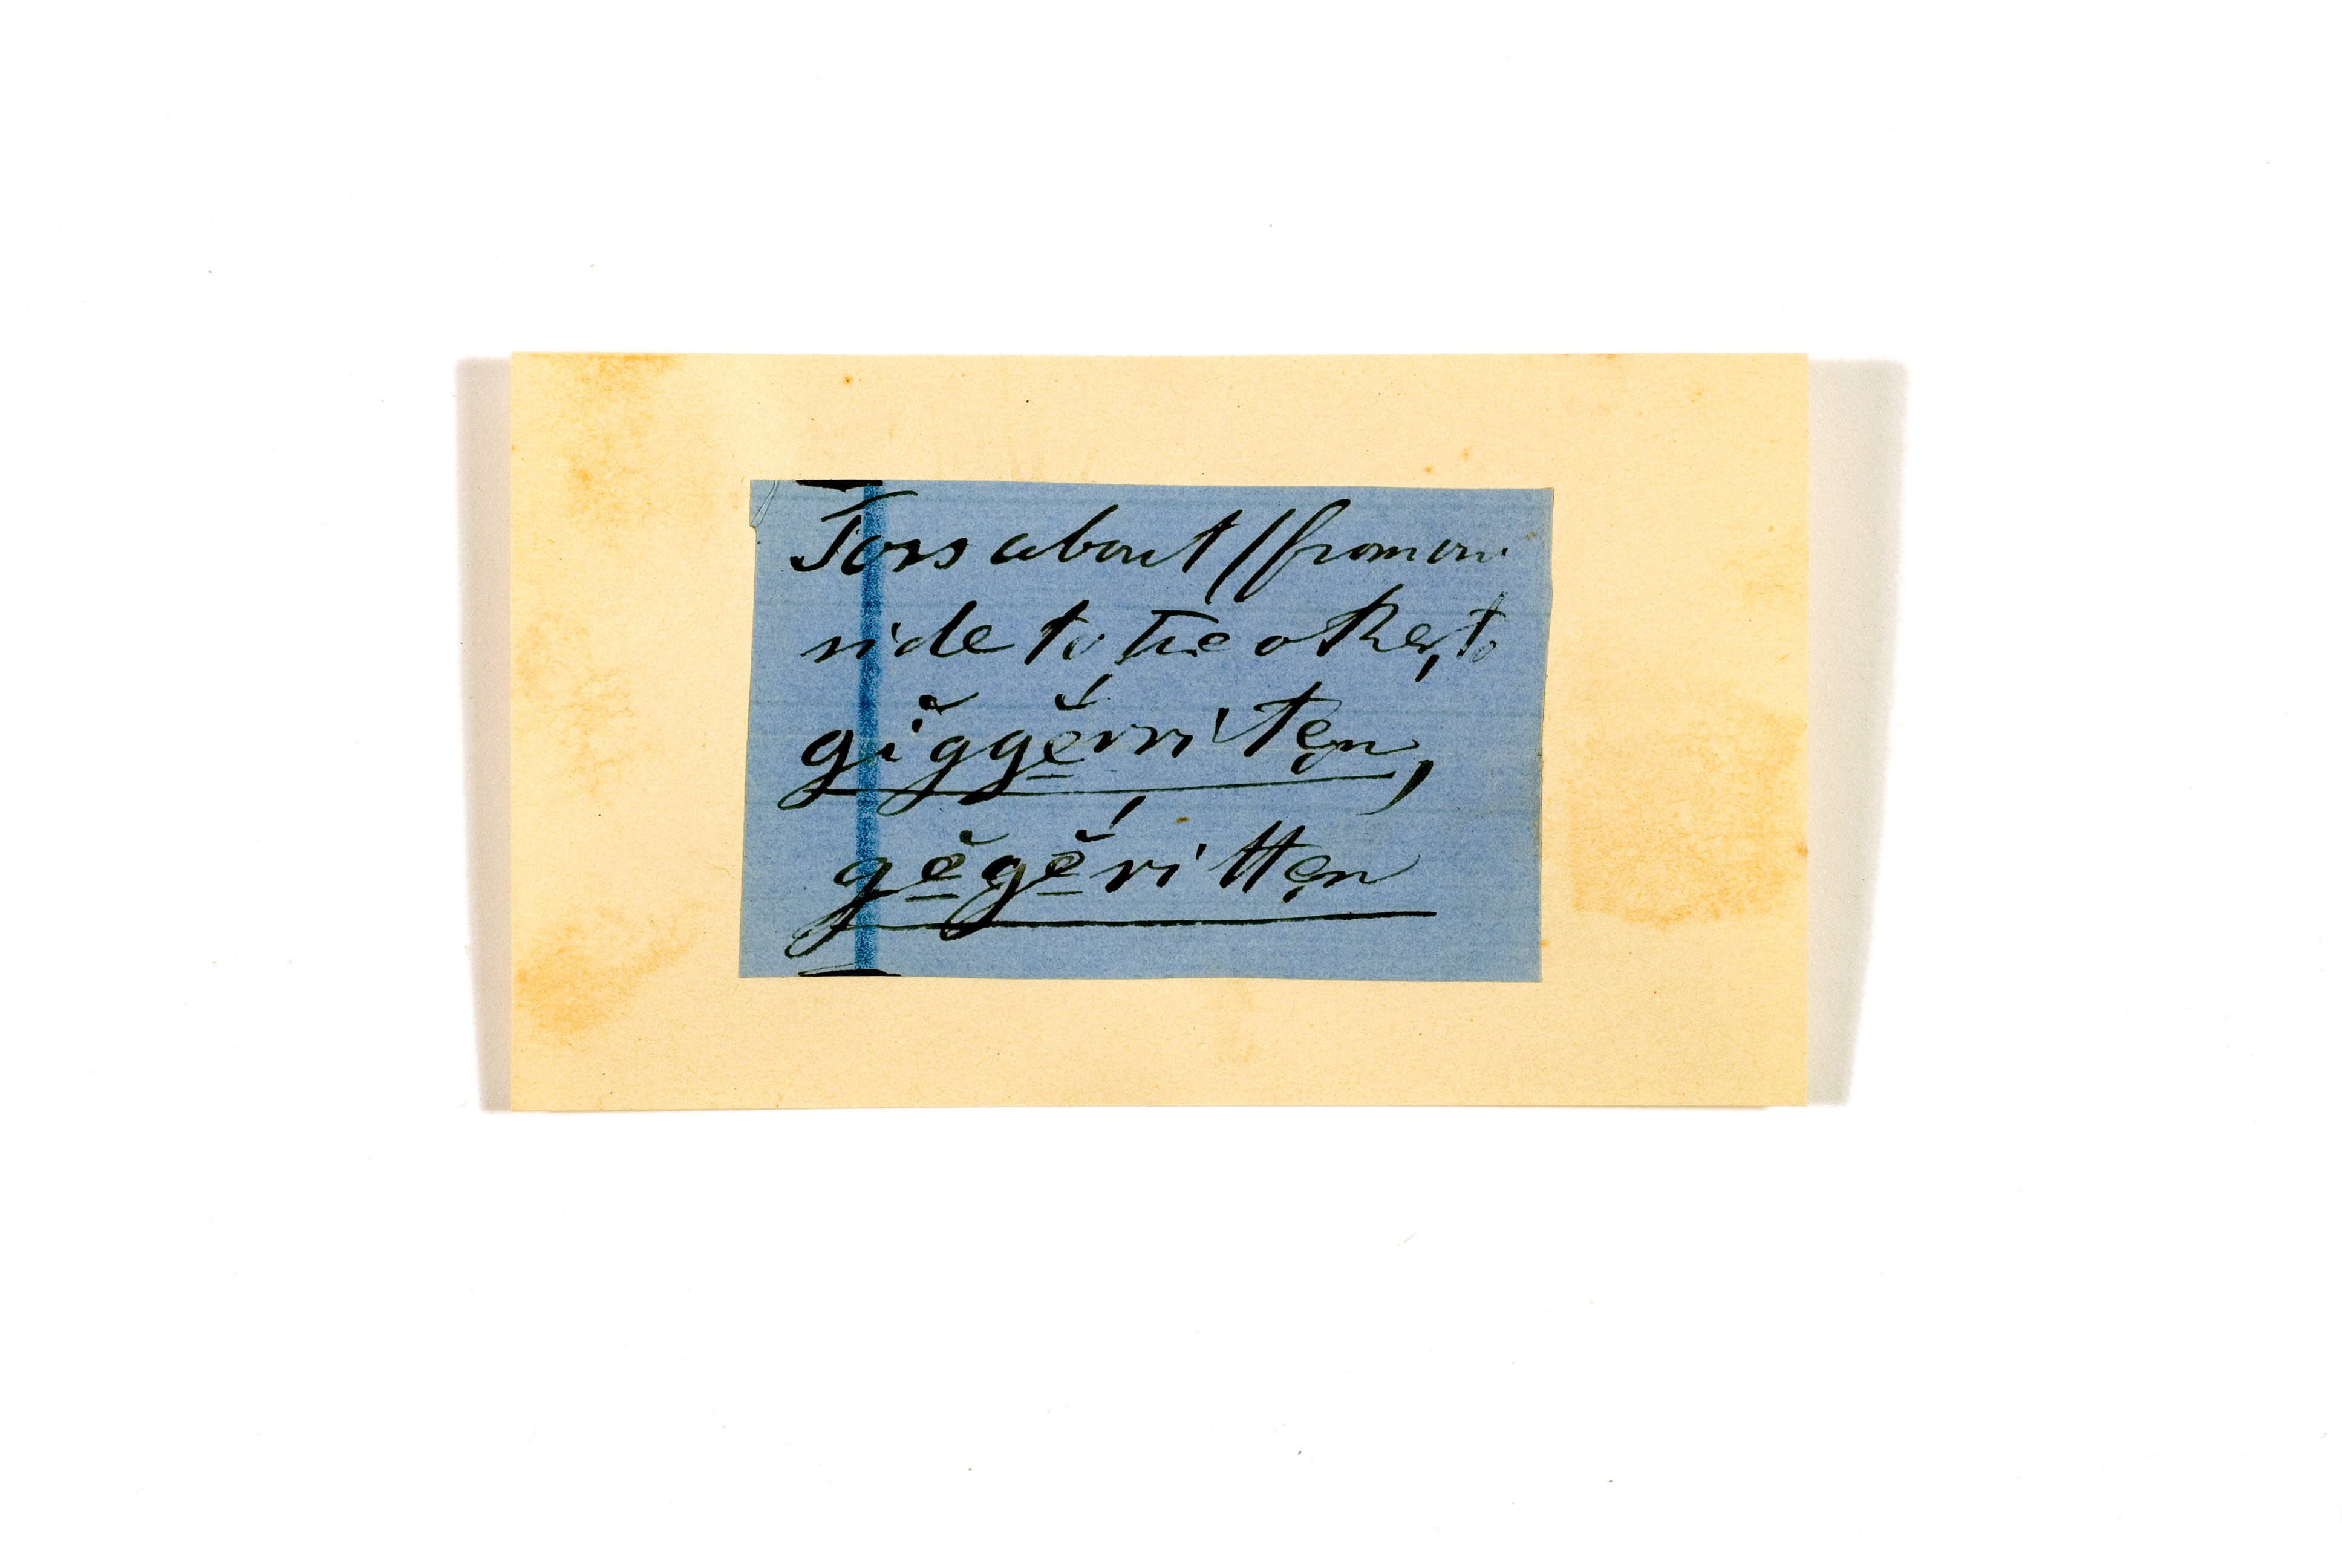 Toss about / (from one
side to the other, to
gĭggĕ̱rriten,
gĕ̱gĕ̱ritten